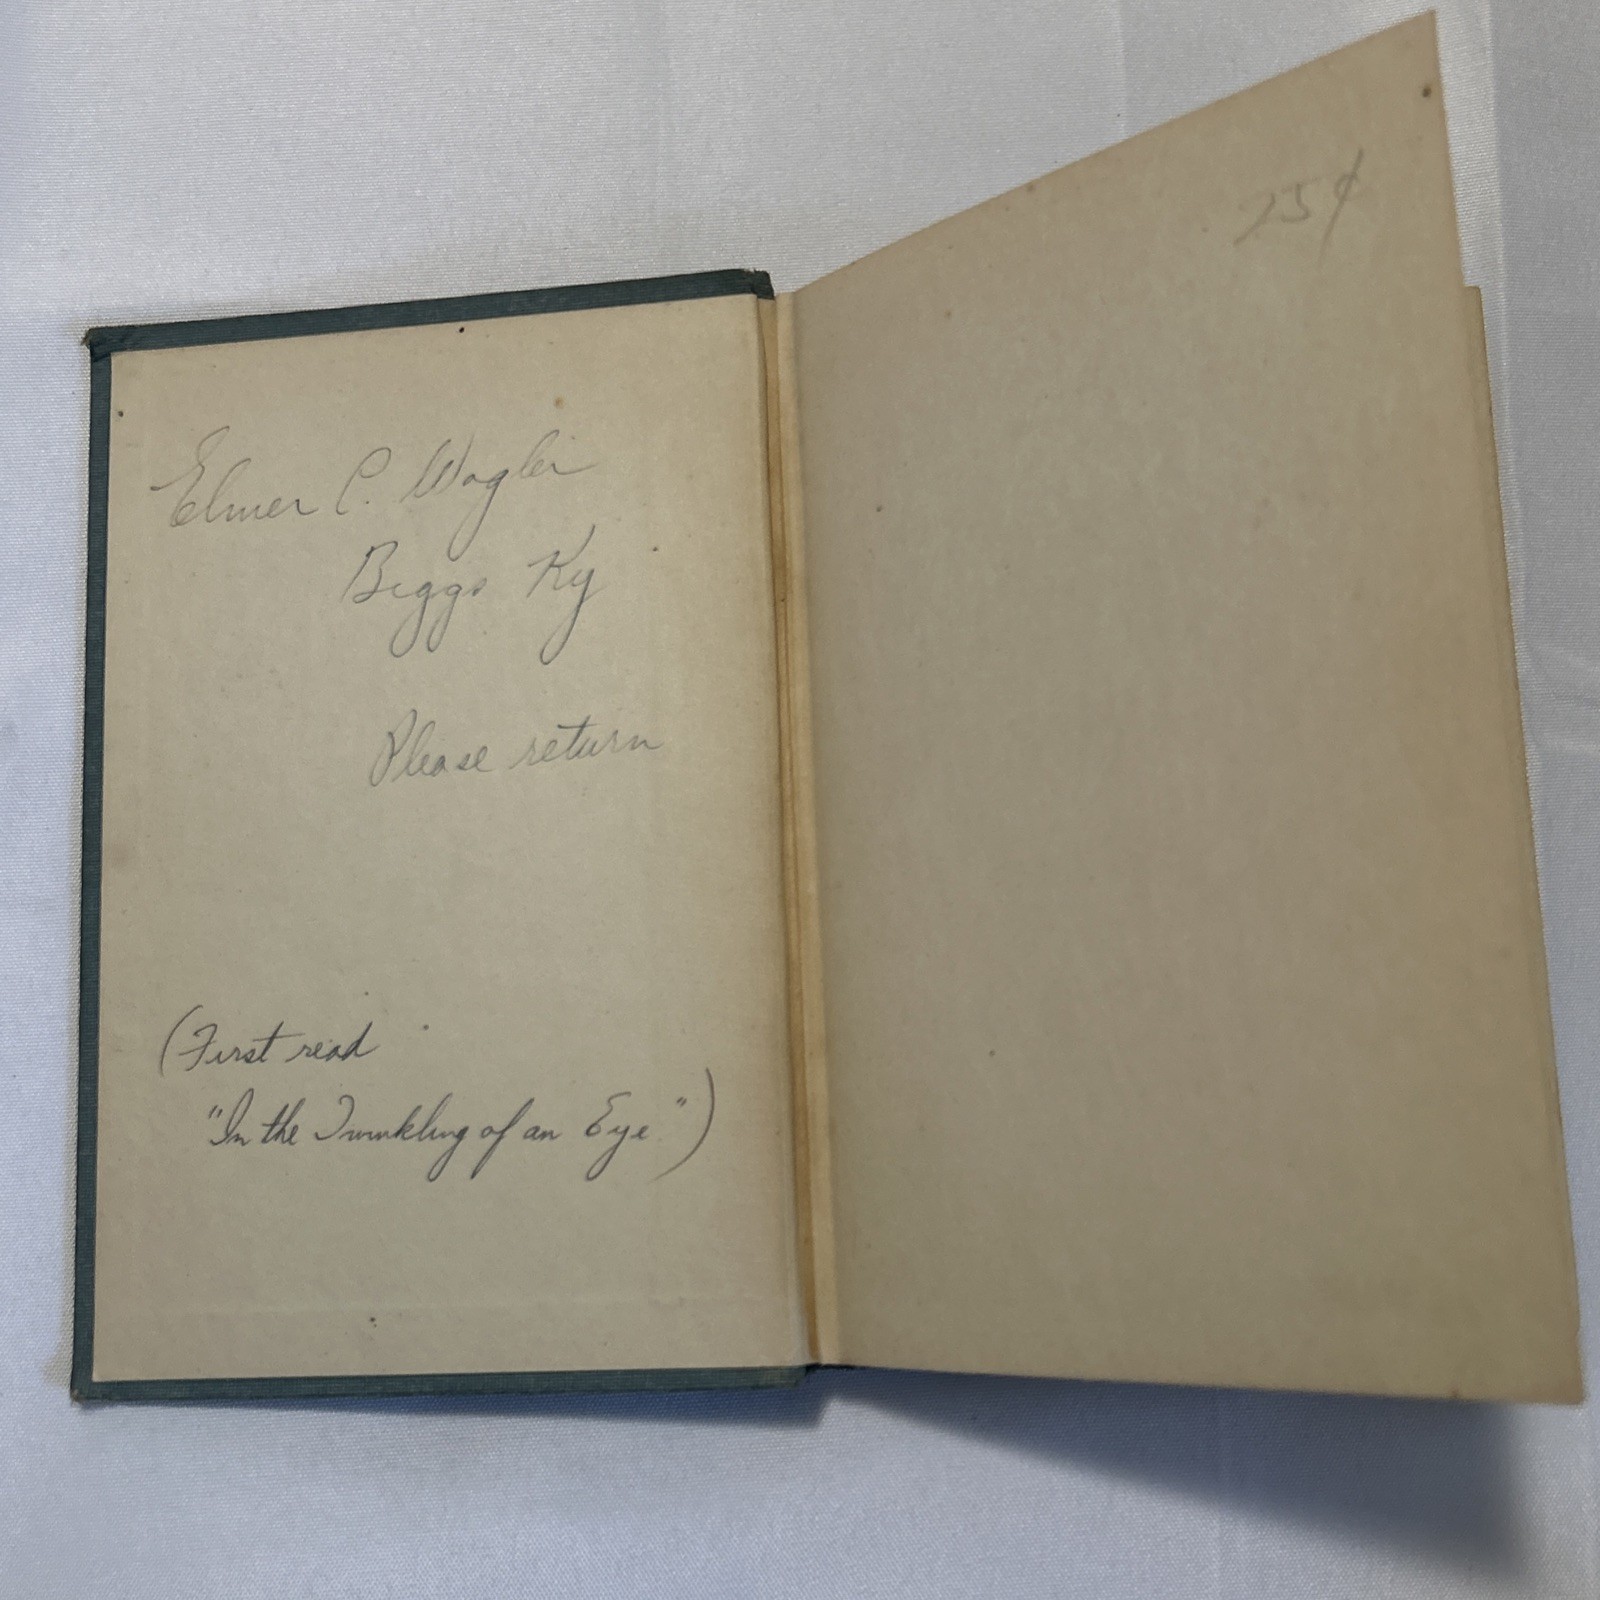 Elmer C. Wagler
Biggs Ky
Please return
(First read
"In the Twinkling of an Eye")
75¢